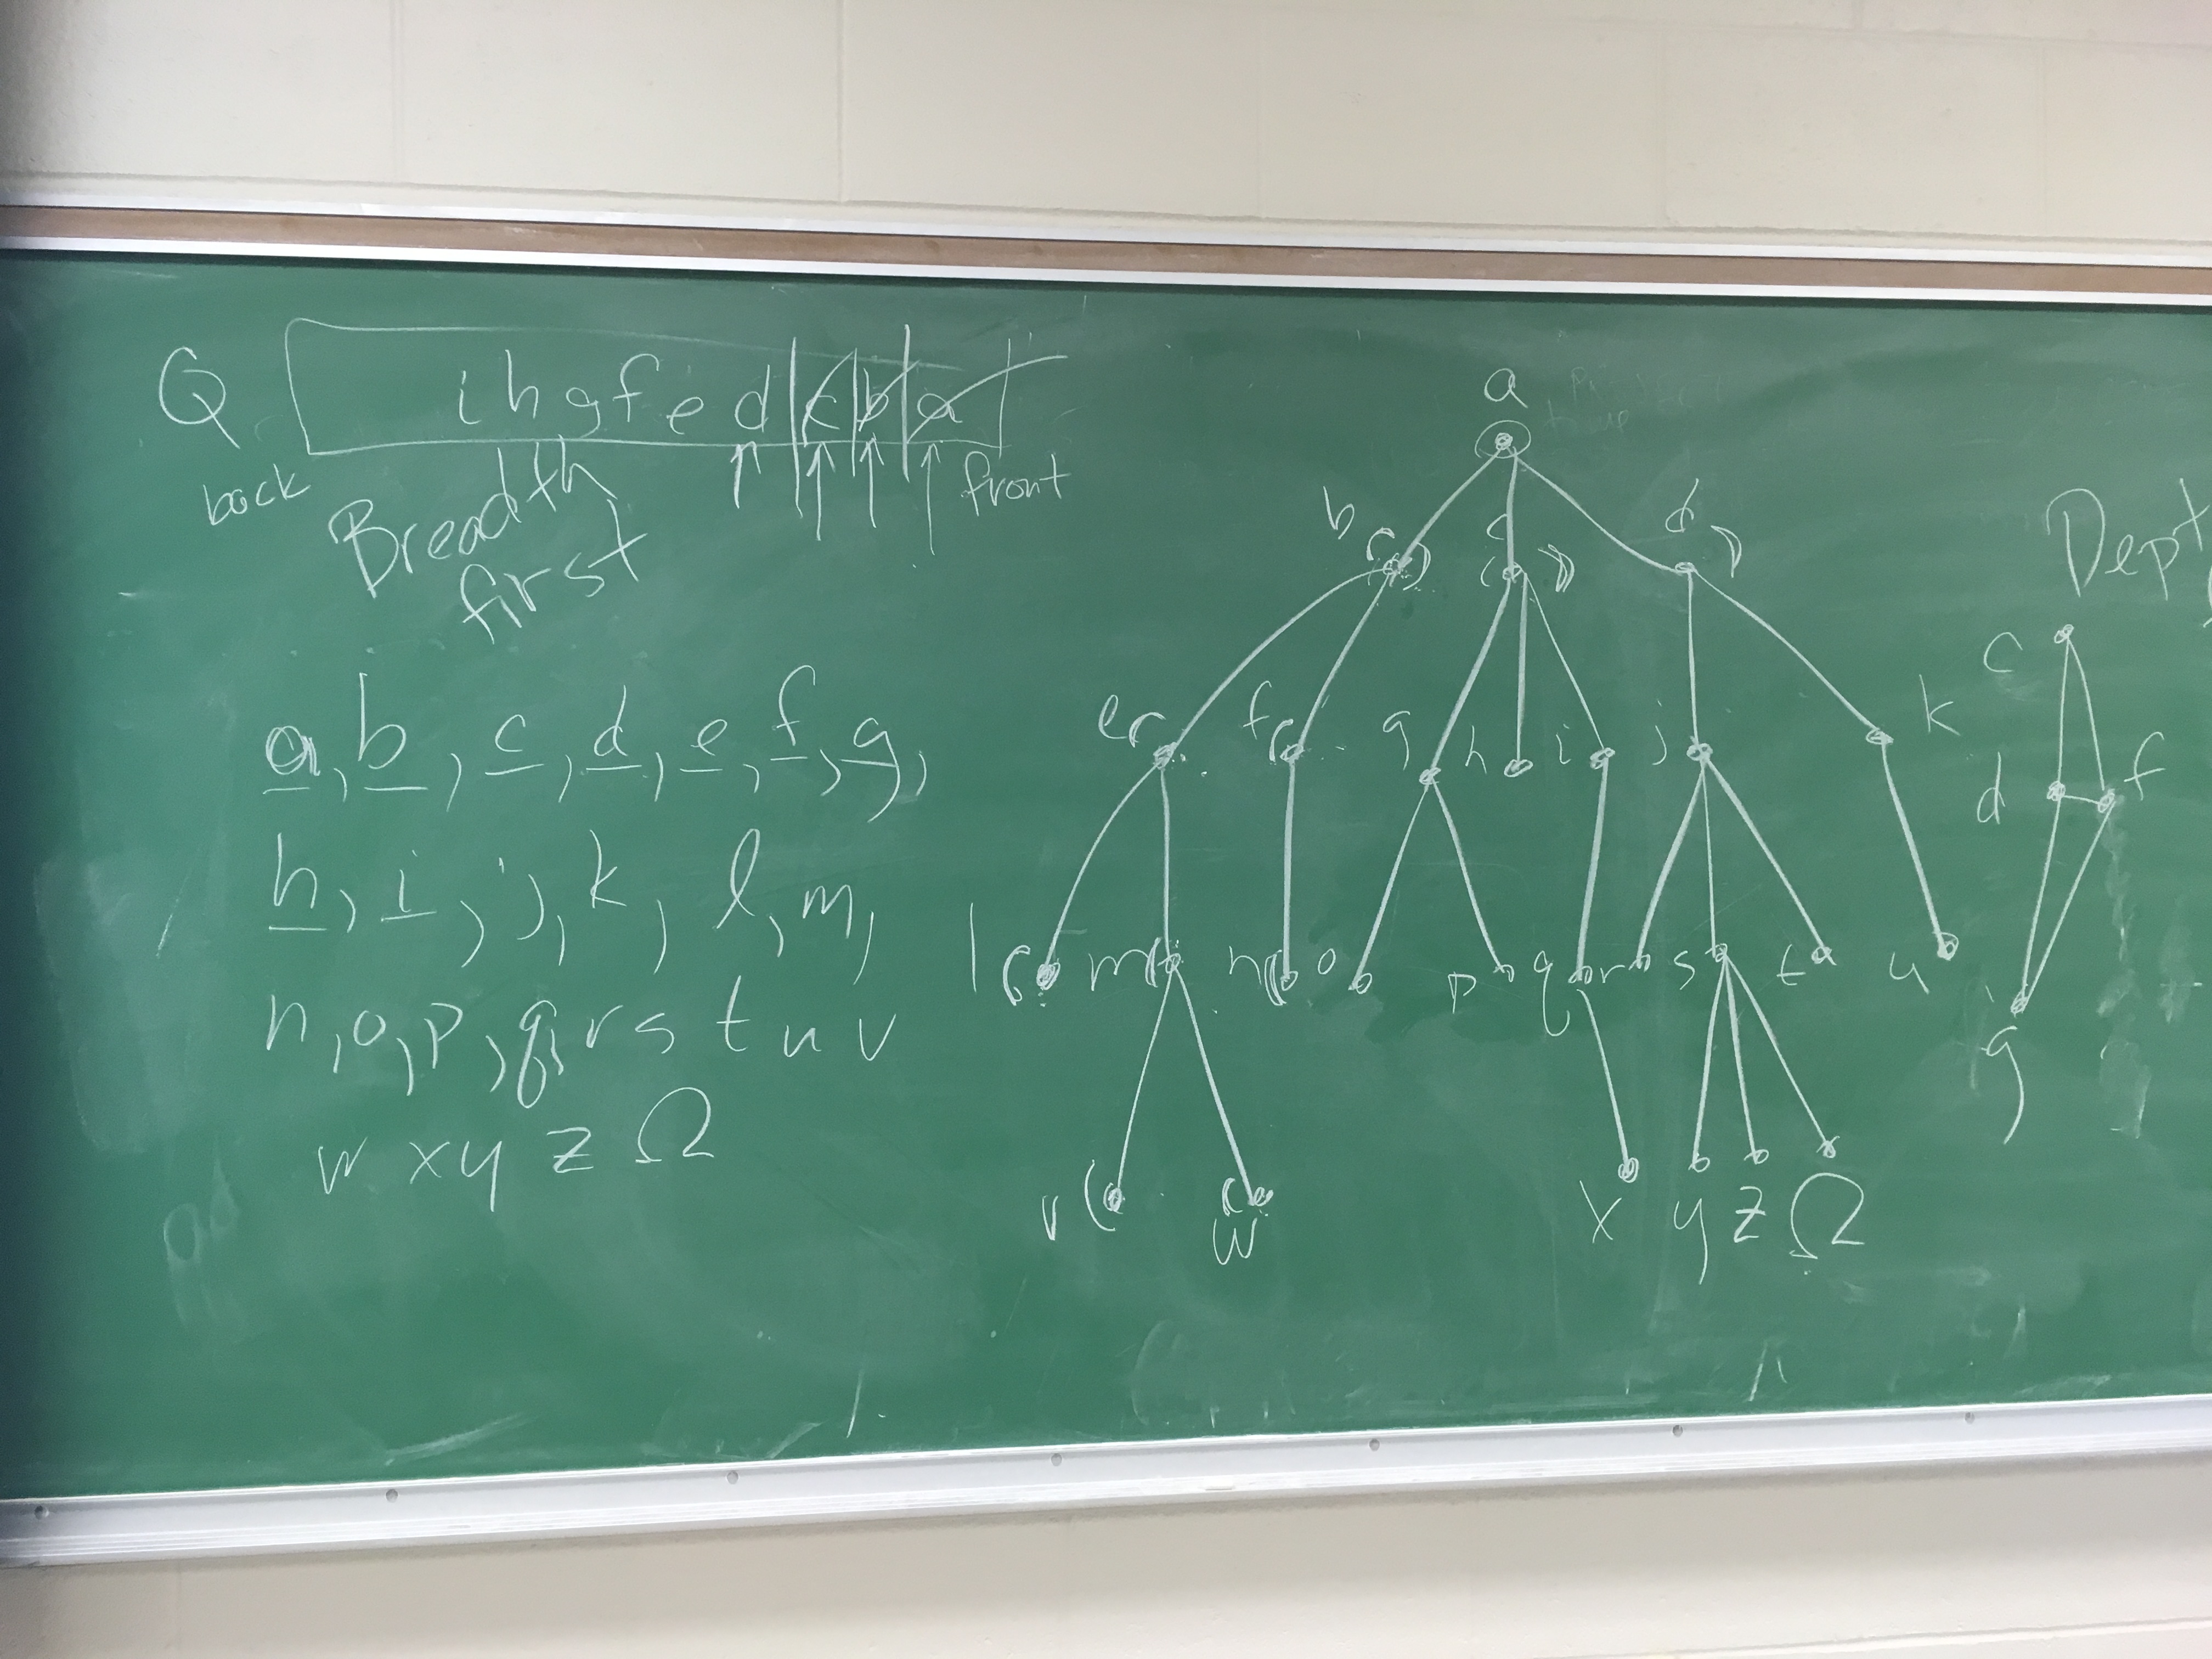 Q i h g f e d c b a
back front
Breadth
first
a, b, c, d, e, f, g,
h, i, j, k, l, m,
n, o, p, q, r s t u v
w x y z Ω
a
b c d
e f g h i j k
l m n o p q r s t u
v w x y z Ω
Dept
c
d f
g